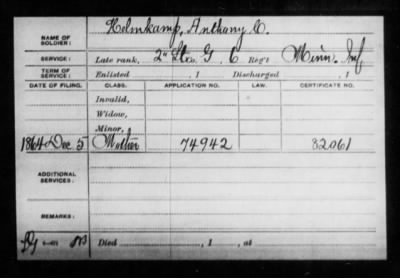 NAME OF SOLDIER: Holmkamp, Anthony C.
SERVICE: Late rank, 2" Lt Co. G, 6 Reg't Minn. Inf
TERM OF SERVICE: Enlisted , 1 Discharged , 1
DATE OF FILING. CLASS. APPLICATION NO. LAW. CERTIFICATE NO.
Invalid,
Widow,
Minor,
1864 Dec 5 Mother 74942 82061
ADDITIONAL SERVICES:
REMARKS:
Died , 1 , at